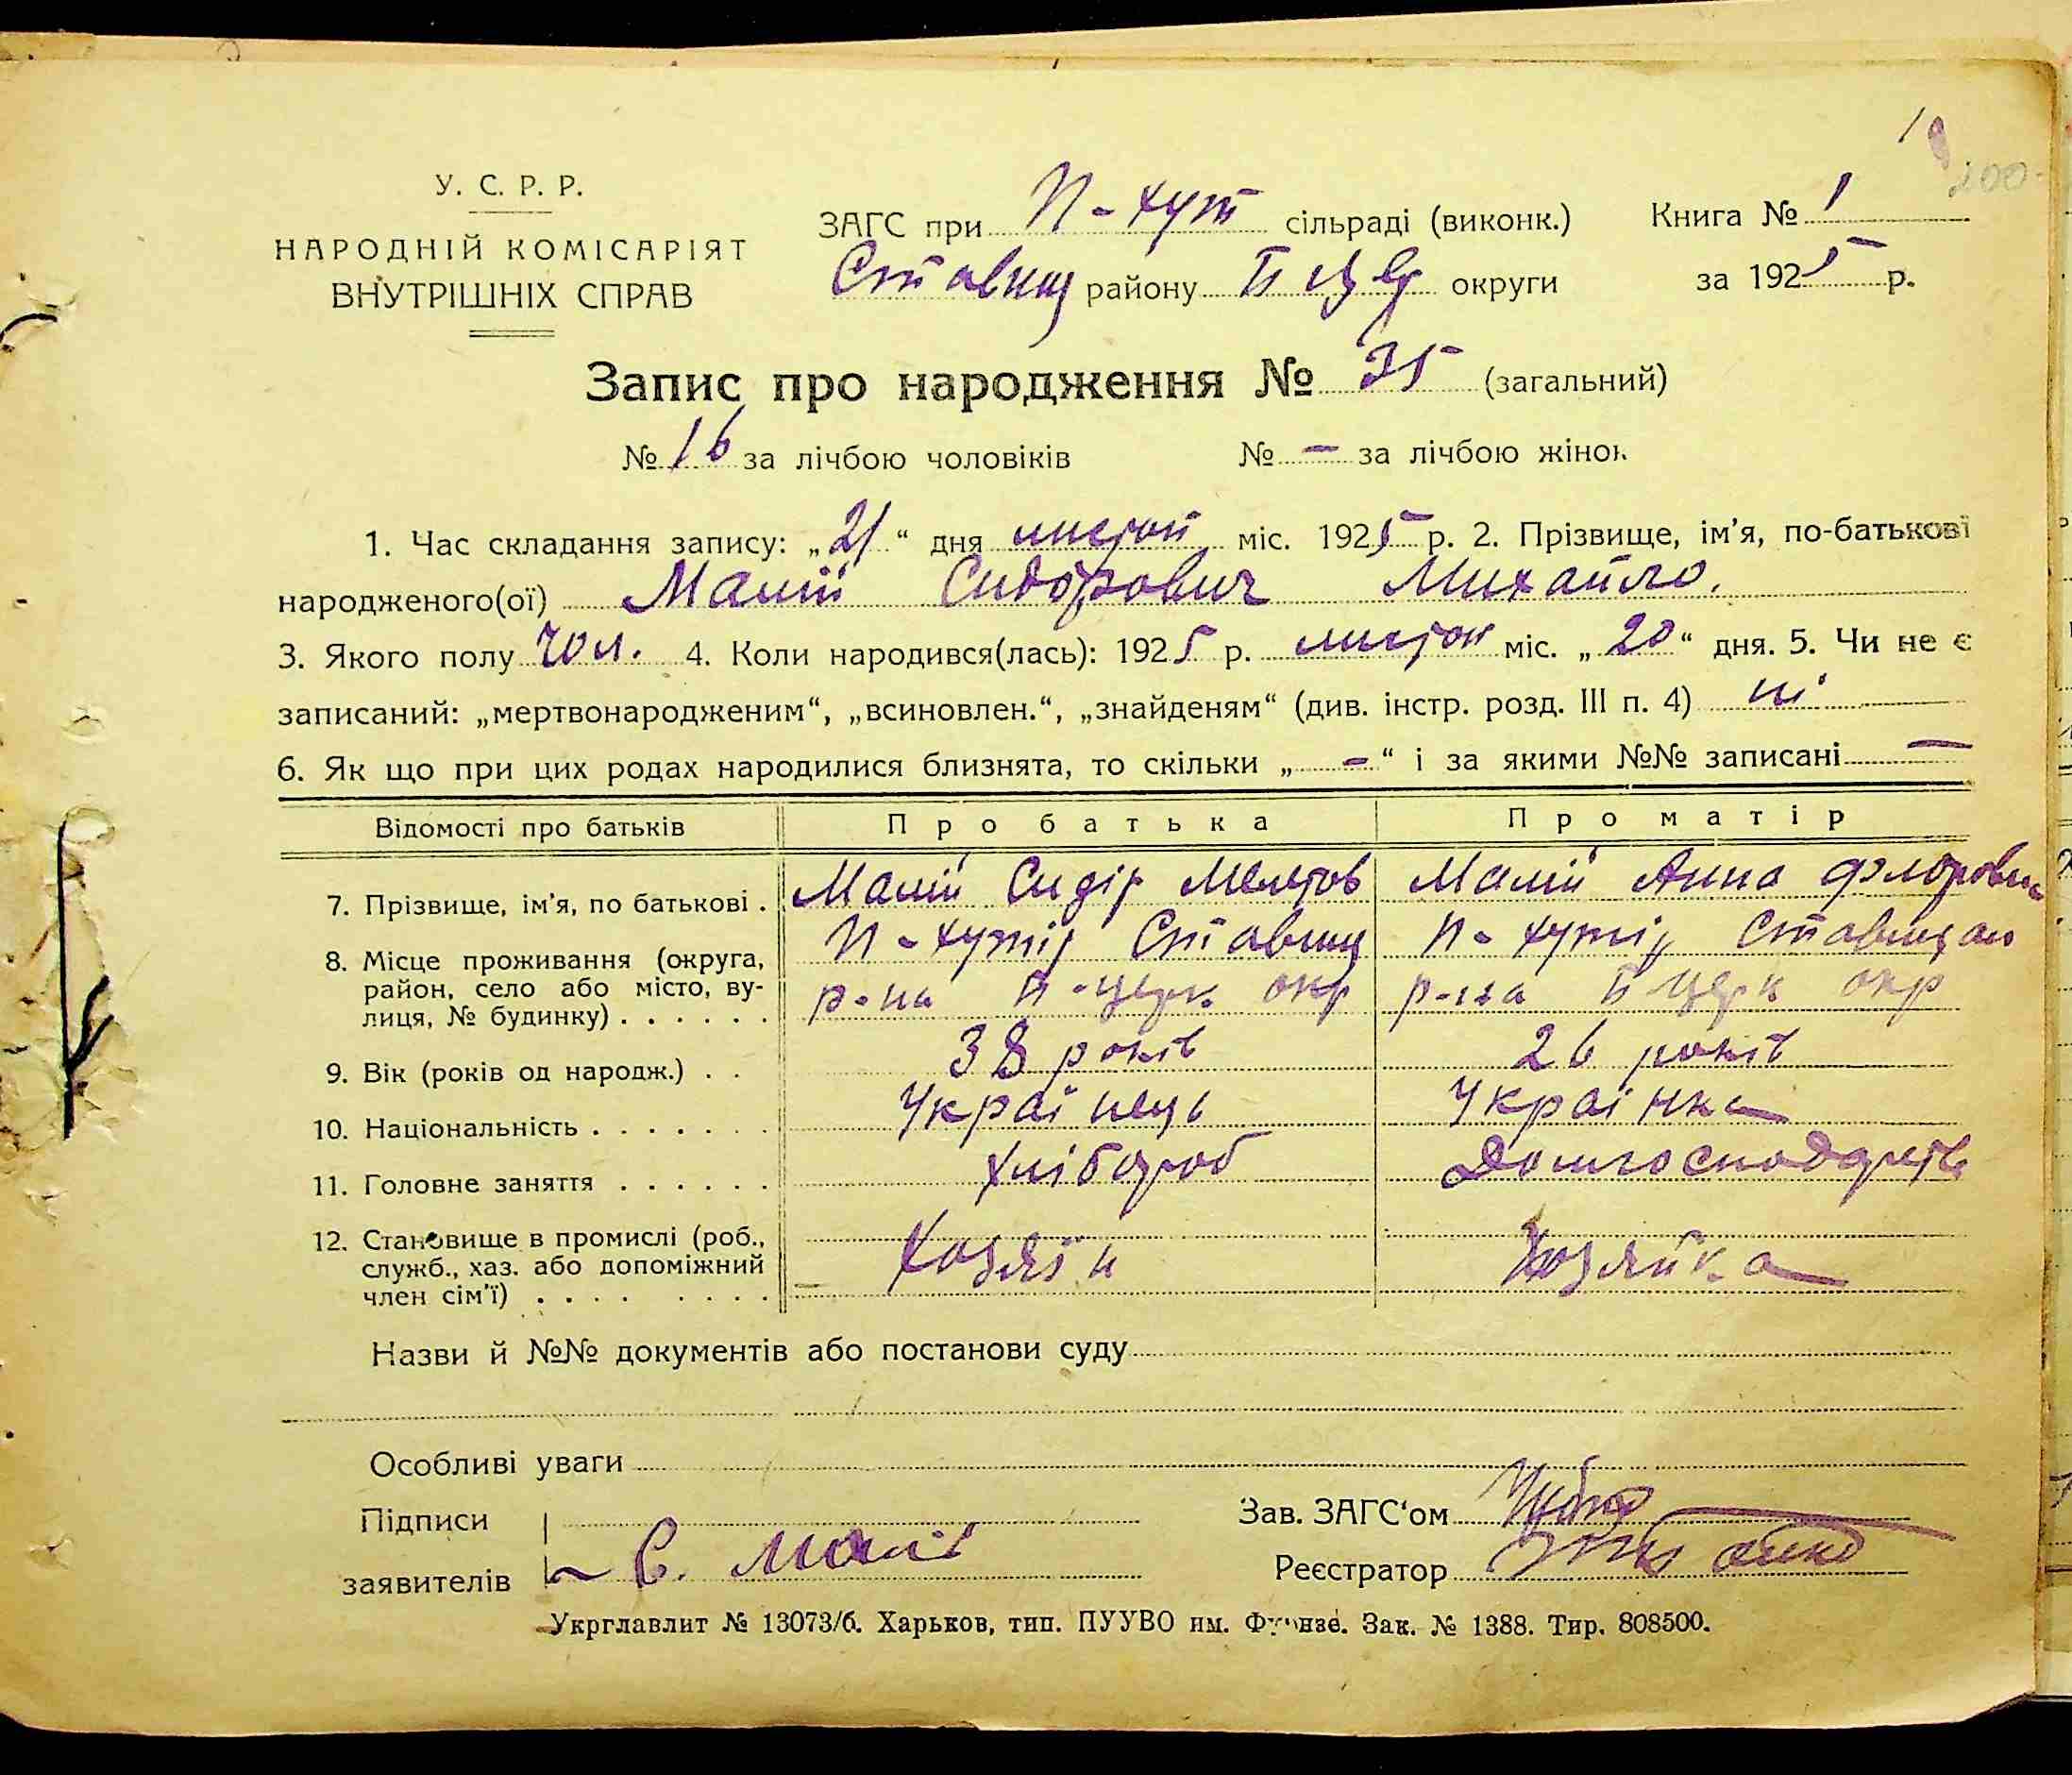 1
200
У. С. Р. Р.
НАРОДНІЙ КОМІСАРІЯТ
ВНУТРІШНІХ СПРАВ
ЗАГС при П-хут сільраді (виконк.) Книга № 1
Ставищ району Б Цер округи за 1925 р.
Запис про народження № 35 (загальний)
№ 16 за лічбою чоловіків № — за лічбою жінок
1. Час складання запису: „21“ дня листоп міс. 1925 р. 2. Прізвище, ім'я, по-батькові
народженого(ої) Малій Сидорович Михайло.
3. Якого полу чол. 4. Коли народився(лась): 1925 р. листоп міс. „20“ дня. 5. Чи не є
записаний: „мертвонародженим“, „всиновлен.“, „знайденям“ (див. інстр. розд. III п. 4) ні
6. Як що при цих родах народилися близнята, то скільки „—“ і за якими №№ записані —
Відомості про батьків Про батька Про матір
7. Прізвище, ім'я, по батькові . Малій Сидір Малій Анна Флоровна
8. Місце проживання (округа, П-хутір Ставищ П-хутір Ставищан
район, село або місто, ву- р-на Б-церк окр р-на Б церк окр
лиця, № будинку) . . . . . .
9. Вік (років од народж.) . . 38 років 26 років
10. Національність . . . . . . . Українець Українка
11. Головне заняття . . . . . . Хлібороб Домгосподарств
12. Становище в промислі (роб.,
служб., хаз. або допоміжний Хозяїн Хозяйка
член сім'ї) . . . . . . . .
Назви й №№ документів або постанови суду
Особливі уваги
Підписи Зав. ЗАГС'ом
заявителів С. Малій Реєстратор
Укрглавлит № 13073/б. Харьков, тип. ПУУВО им. Фрунзе. Зак. № 1388. Тир. 808500.